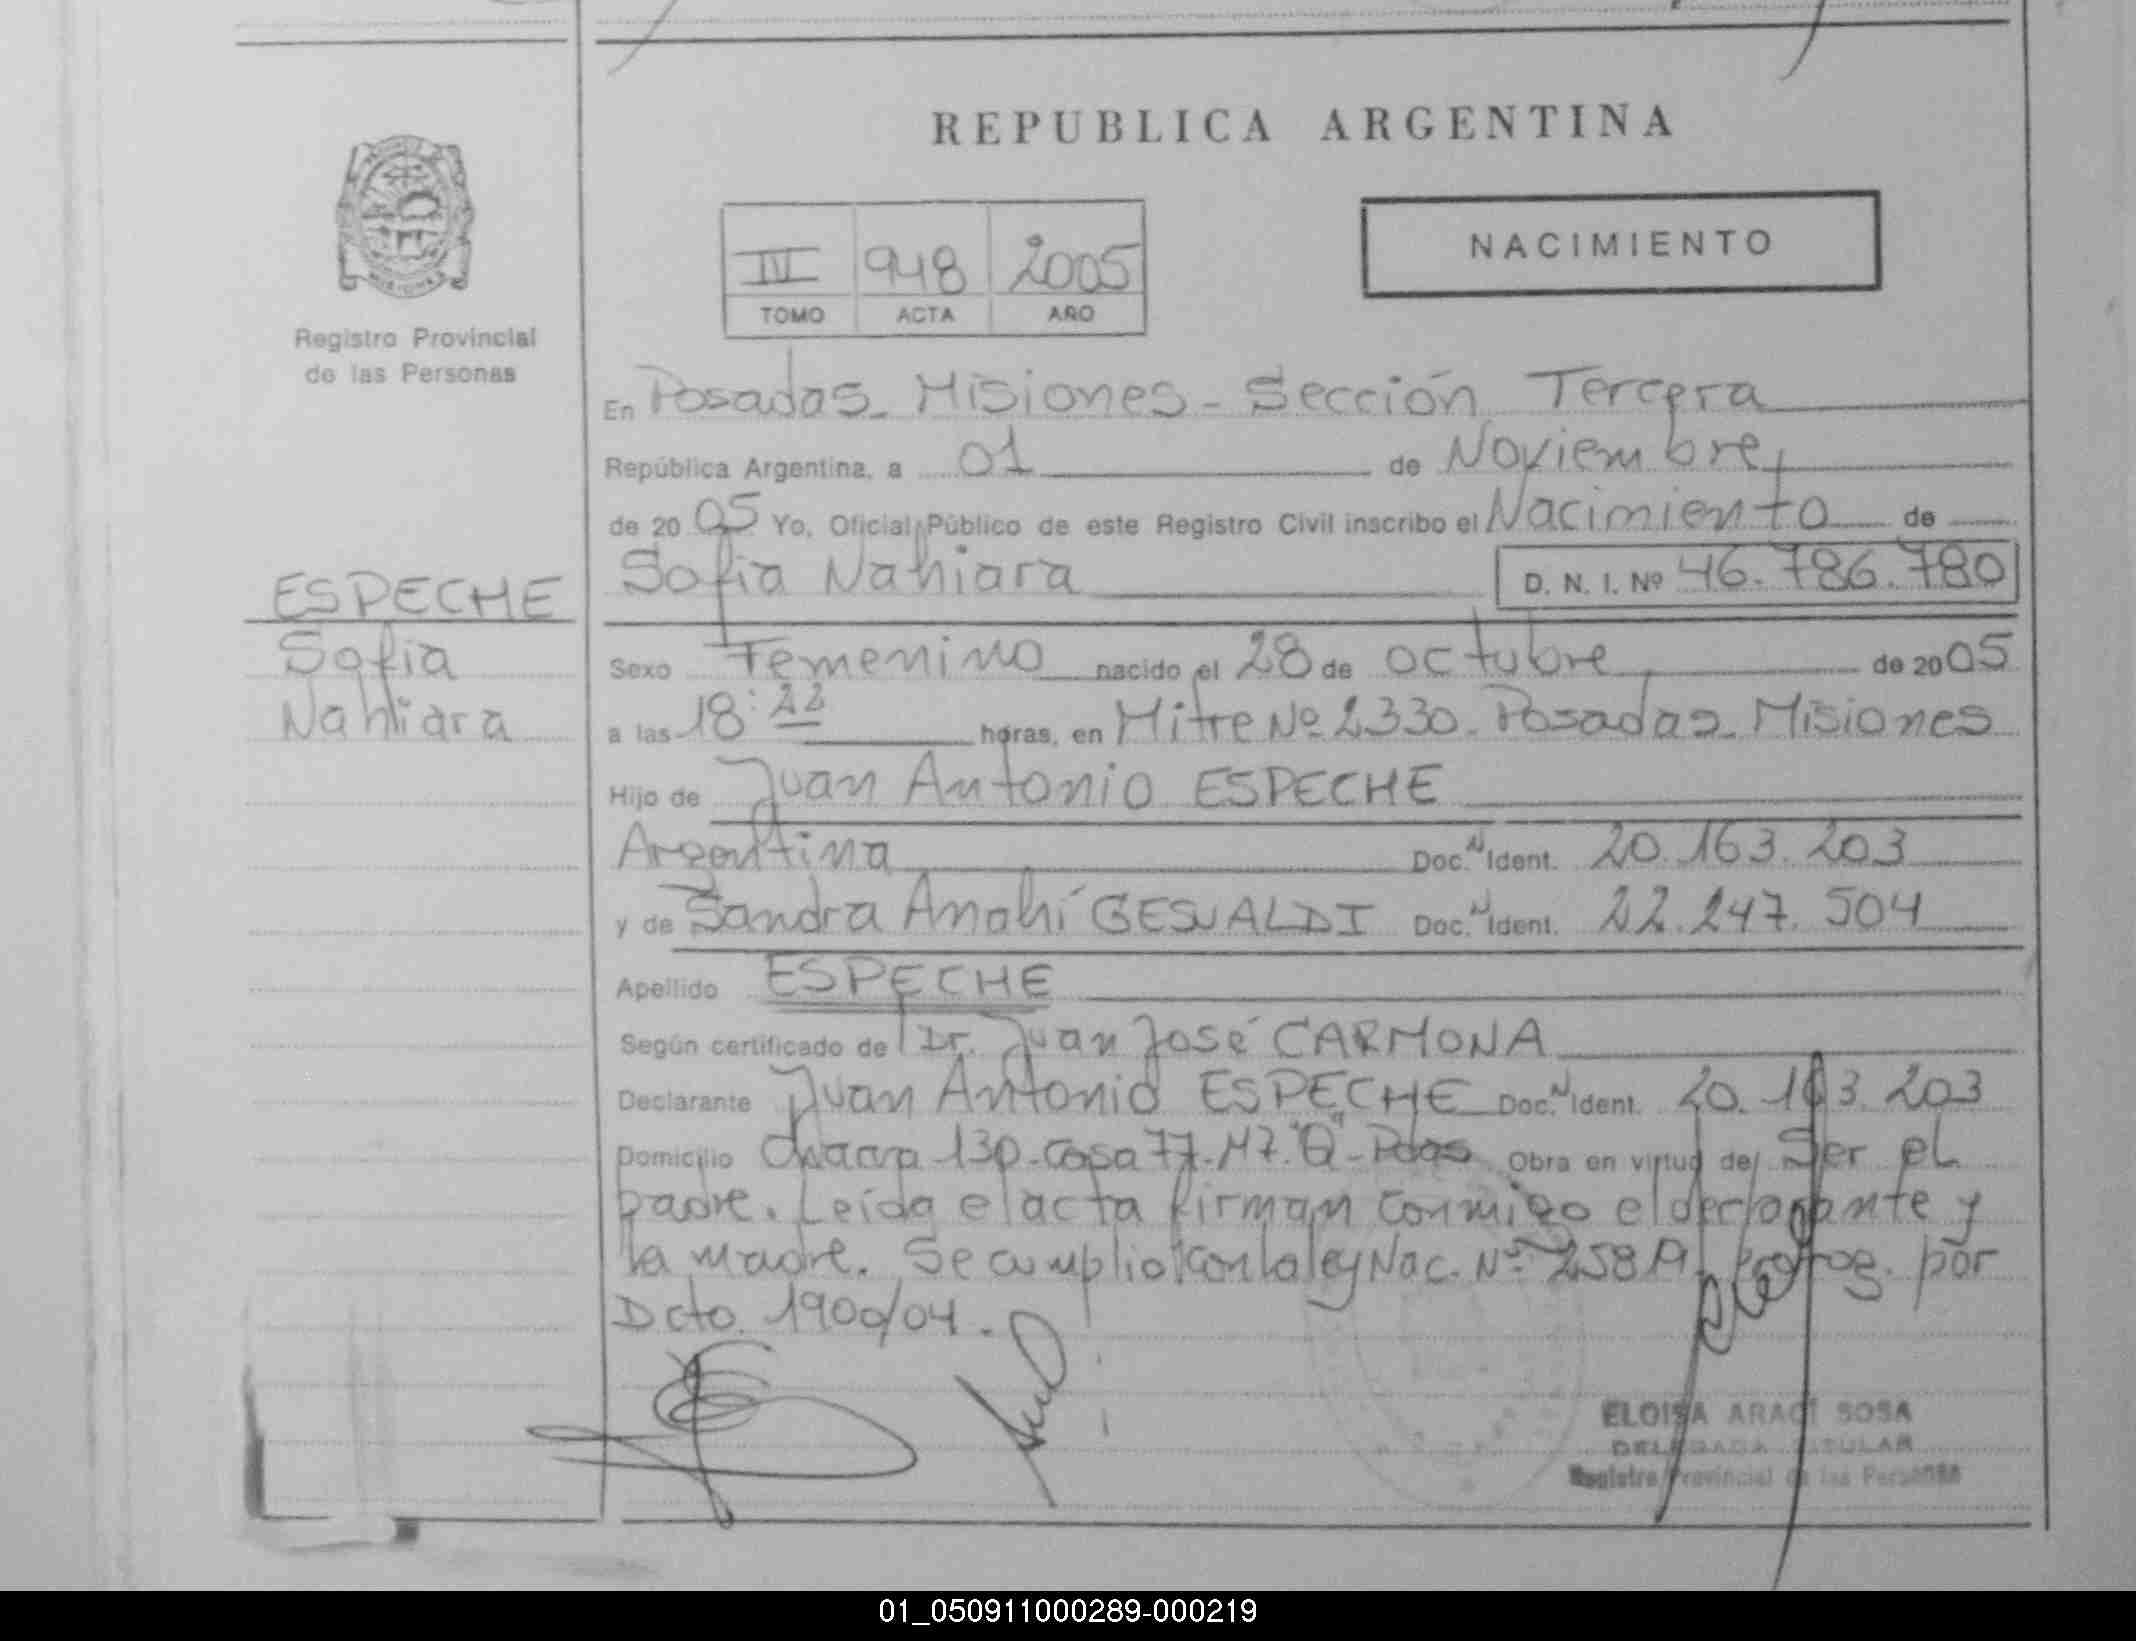 REPUBLICA ARGENTINA
NACIMIENTO
IV 948 2005
TOMO ACTA AÑO
Registro Provincial
de las Personas
En Posadas - Misiones - Sección Tercera
República Argentina, a 01 de Noviembre
de 2005 Yo, Oficial Público de este Registro Civil inscribo el Nacimiento de
Sofia Nahiara D. N. I. Nº 46.786.780
ESPECHE
Sofia
Nahiara
Sexo Femenino nacido el 28 de octubre de 2005
a las 18:22 horas, en Mitre Nº 2330 - Posadas - Misiones
Hijo de Juan Antonio ESPECHE
Argentina Doc. N Ident. 20.163.203
y de Sandra Anahí GESUALDI Doc. N Ident. 22.247.504
Apellido ESPECHE
Según certificado de Dr. Juan José CARMONA
Declarante Juan Antonio ESPECHE Doc. N Ident. 20.163.203
Domicilio Chacra 130 - Casa 77 - Mz. "Q" - Pdas Obra en virtud de Ser el
padre. Leída el acta firman conmigo el declarante y
la madre. Se cumplio con la ley Nac. Nº por
Dcto. 1900/04.
ELOISA ARACI SOSA
DELEGADA TITULAR
Registro Provincial de las Personas
01_050911000289-000219